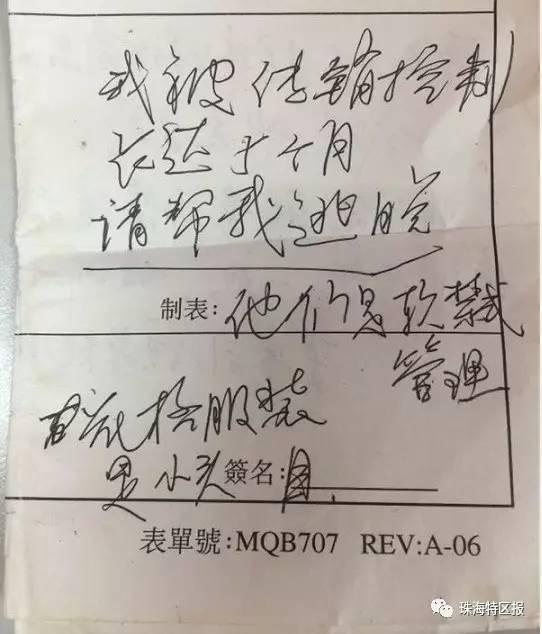 我被传销控制
长达十个月
请帮我逃脱
制表: 他们是软禁式
管理
格服装
是小头目
簽名:
表單號:MQB707 REV:A-06
珠海特区报